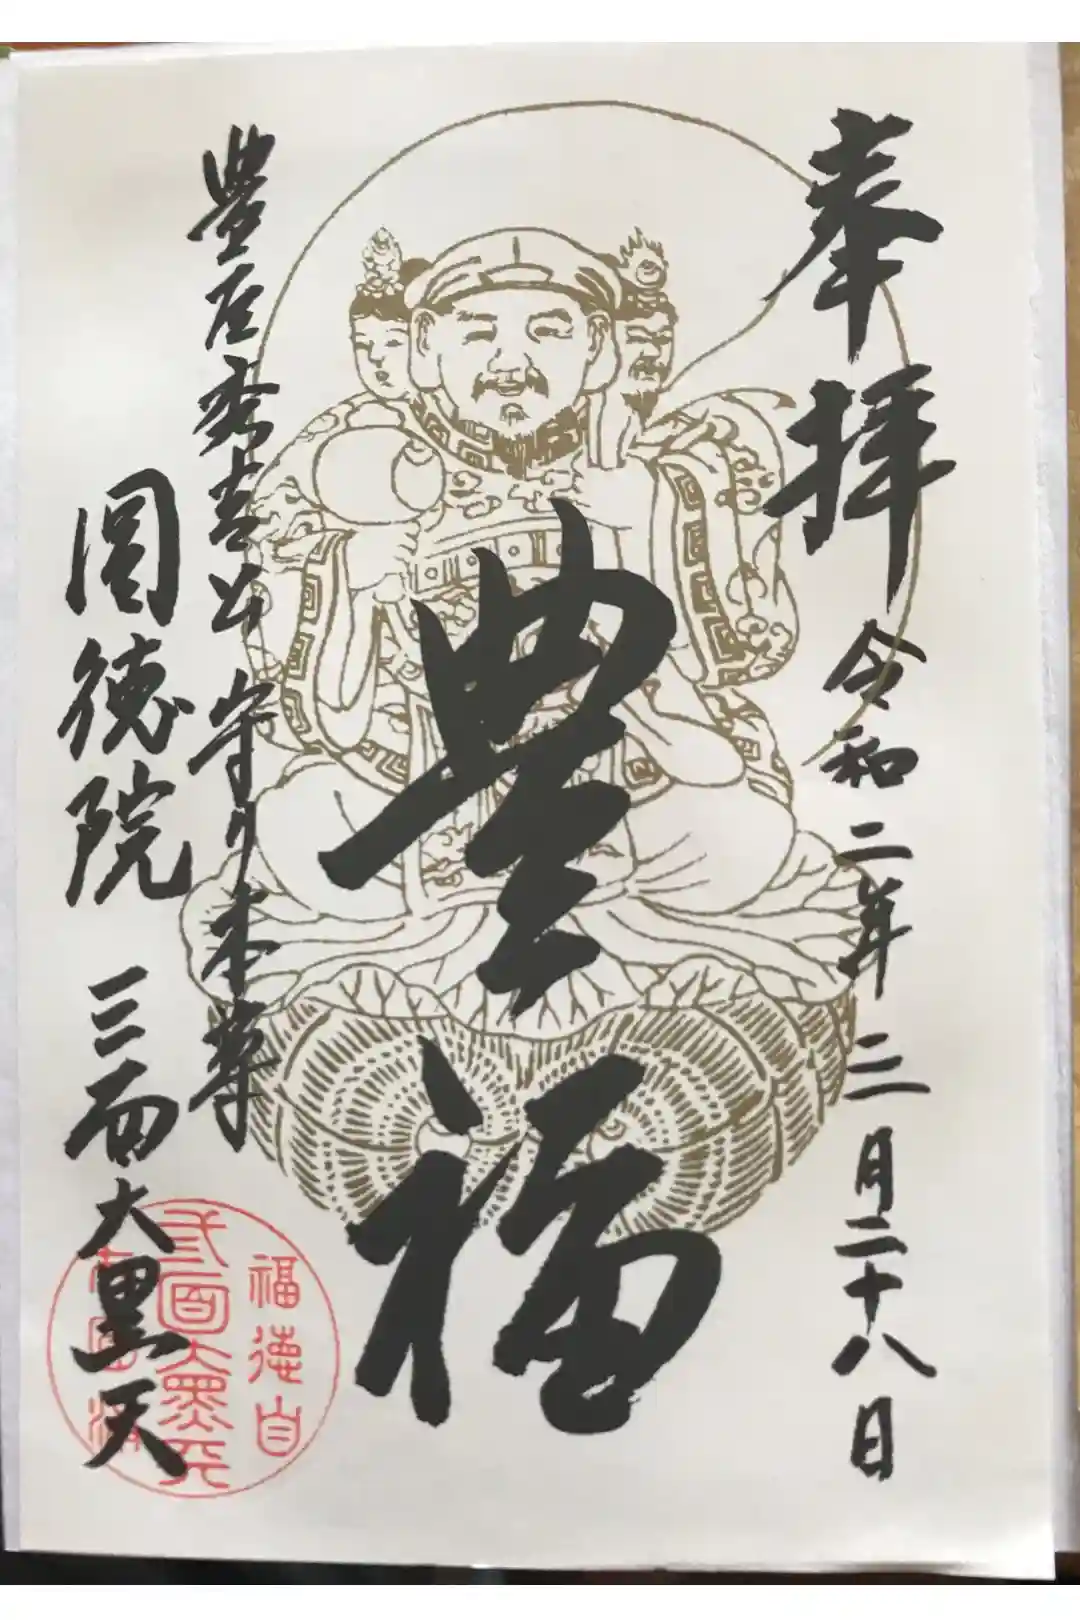 奉拝
令和二年三月二十八日
豊福
豊臣秀吉公守り本尊
圓徳院
三面大黒天
福徳自
三面大黒天